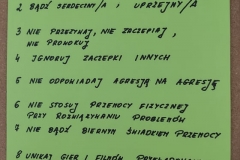 2 BĄDŹ SERDECZNY/A I UPRZEJMY/A
3 NIE PRZEZYWAJ, NIE ZACZEPIAJ,
NIE PROWOKUJ
4 IGNORUJ ZACZEPKI INNYCH
5 NIE ODPOWIADAJ AGRESJĄ NA AGRESJĘ
6 NIE STOSUJ PRZEMOCY FIZYCZNEJ
PRZY ROZWIĄZYWANIU PROBLEMÓW
7 NIE BĄDŹ BIERNYM ŚWIADKIEM PRZEMOCY
8 UNIKAJ GIER I FILMÓW